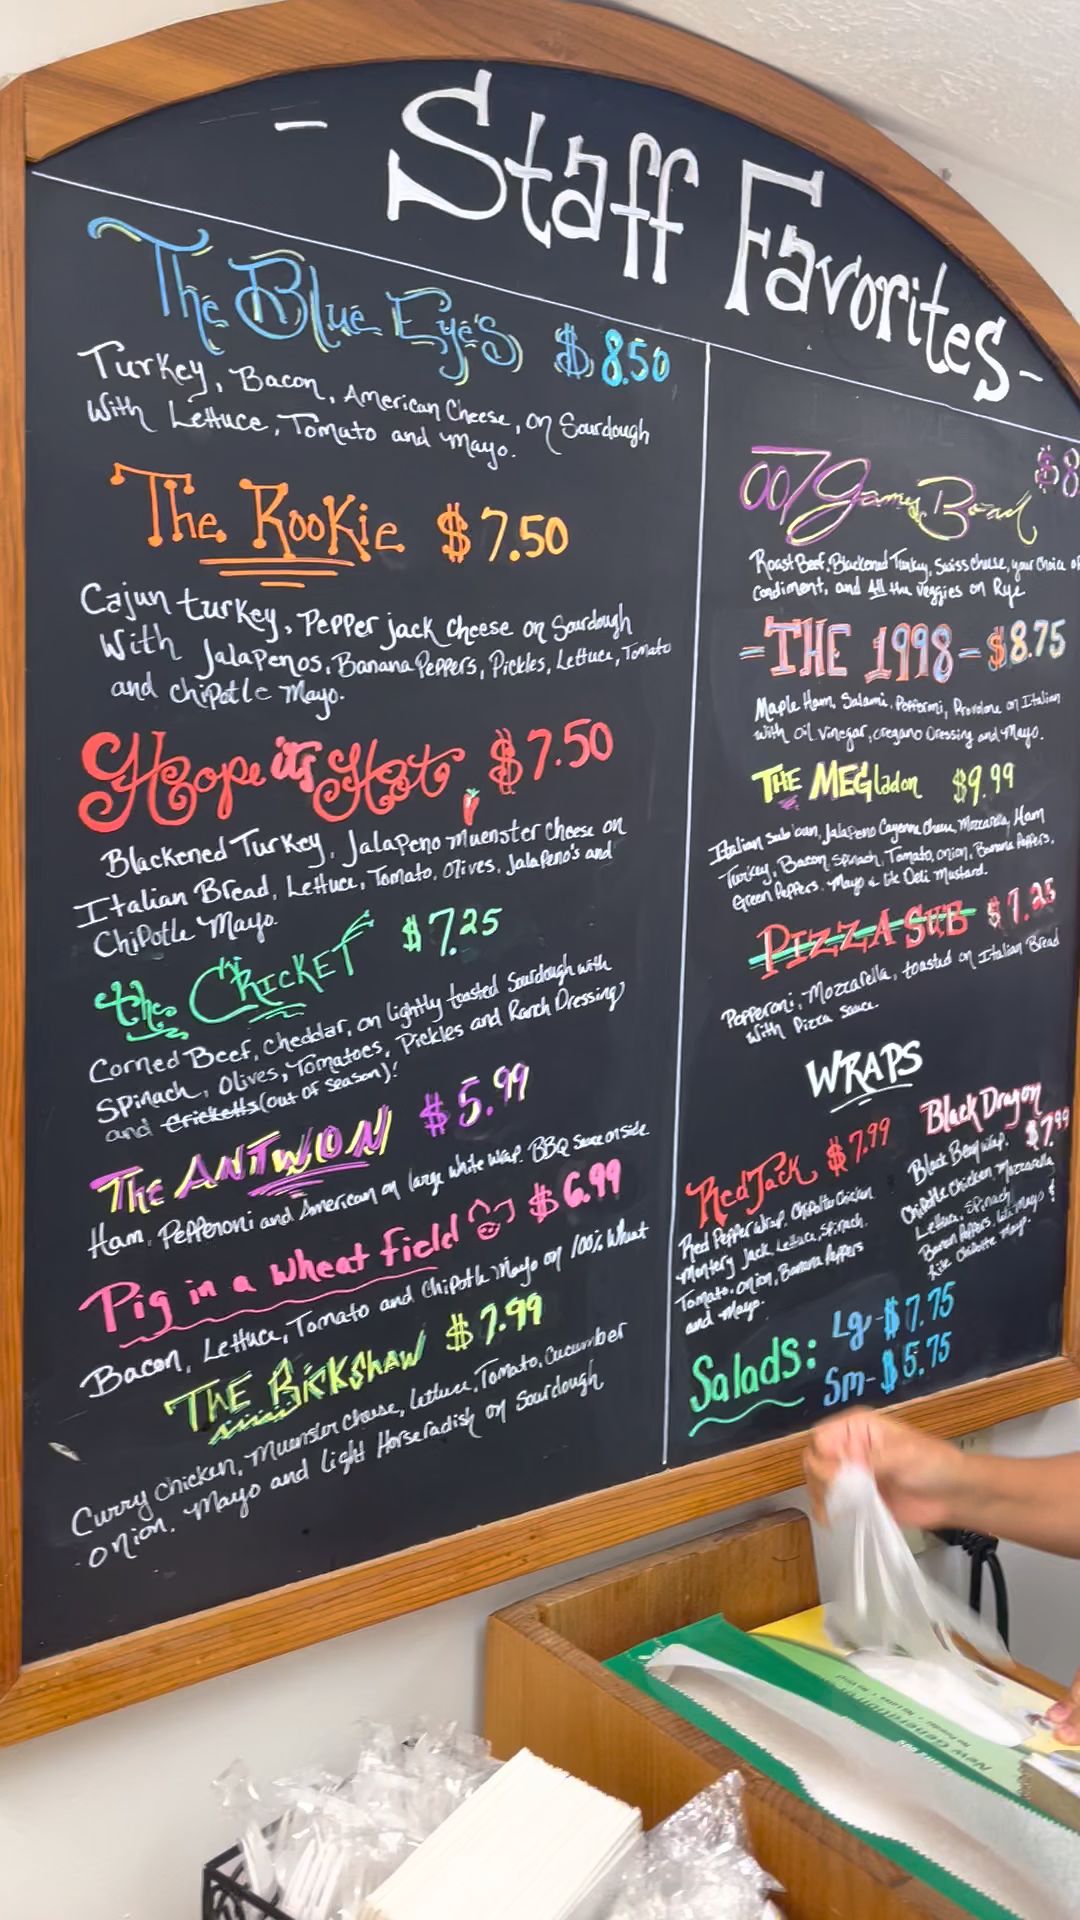 - Staff Favorites -
The Blue Eye's $8.50
Turkey, Bacon, American Cheese, on Sourdough
With Lettuce, Tomato and Mayo.
The Rookie $7.50
Cajun turkey, Pepper jack cheese on Sourdough
With Jalapenos, Banana Peppers, Pickles, Lettuce, Tomato
and chipotle Mayo.
Hope its Hot $7.50
Blackened Turkey, Jalapeno muenster cheese on
Italian Bread, Lettuce, Tomato, Olives, Jalapeno's and
Chipotle Mayo.
the Cricket $7.25
Corned Beef, Cheddar, on lightly toasted Sourdough with
Spinach, Olives, Tomatoes, Pickles and Ranch Dressing
and Cricketts (out of season)!
The ANTWON $5.99
Ham, Pepperoni and American on large white wrap. BBQ Sauce on side
Pig in a wheat field $6.99
Bacon, Lettuce, Tomato and Chipotle Mayo on 100% Wheat
THE RICKSHAW $7.99
Curry chicken, Muenster cheese, Lettuce, Tomato, Cucumber
onion, Mayo and light Horseradish on Sourdough
007 James Bond $8
Roast Beef, Blackened Turkey, Swiss cheese, your choice of
Condiment, and All the veggies on Rye
- THE 1998 - $8.75
Maple Ham, Salami, Pepperoni, Provolone on Italian
with oil vinegar, oregano Dressing and Mayo.
THE MEGladon $9.99
Italian Sub bun, Jalapeno Cayenne Cheese, Mozzarella, Ham
Turkey, Bacon, Spinach, Tomato, onion, Banana Peppers,
Green Peppers, Mayo & lite Deli Mustard.
PIZZA SUB $7.25
Pepperoni, Mozzarella, toasted on Italian Bread
With Pizza Sauce.
WRAPS
Red Jack $7.99
Red Pepper Wrap, Chipotle Chicken
Montery Jack, Lettuce, Spinach,
Tomato, onion, Banana Peppers
and Mayo.
Black Dragon
$7.99
Black Bean wrap.
Chipotle Chicken Mozzarella,
Lettuce, Spinach
Banana Peppers, lite Mayo &
lite Chipotle Mayo.
Salads: Lg- $7.75
Sm- $5.75
New Generation